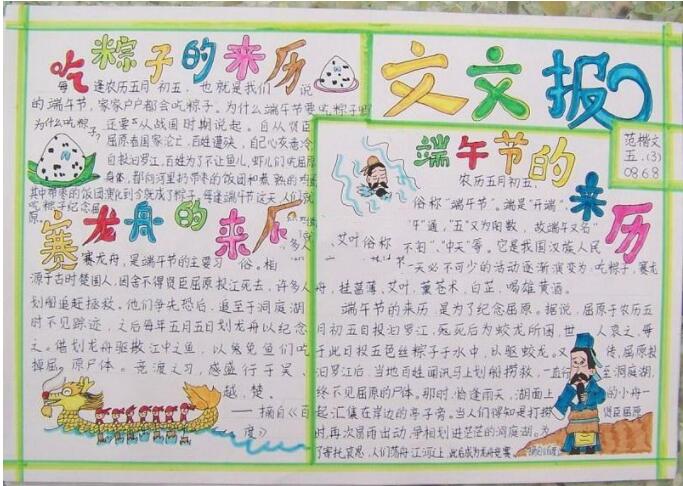 吃粽子的来历
每逢农历五月初五，也就是我们说
的端午节，家家户户都会吃粽子。为什么端午节要吃粽子呢
为什么吃粽子？还要从战国时期说起。自从贤臣
屈原看国家沦亡，百姓遭殃，自己心灰意冷
自投汨罗江，百姓为了不让鱼儿，虾儿们吃屈原
身体，都向河里扔带枣的饭团和煮熟的鸡蛋
其中带枣的饭团演化到今就成了粽子，每逢端午节这天人们就
吃粽子纪念屈原。
赛龙舟的来历
赛龙舟，是端午节的主要习俗。相
源于古时楚国人，因舍不得贤臣屈原投江死去，许多人
划船追赶拯救。他们争先恐后，追至于洞庭湖
时不见踪迹，之后每年五月五日划龙舟以纪念
之。借划龙舟驱散江中之鱼，以免鱼们吃
掉屈原尸体。竞渡之习，盛行于吴、
越，楚。
——摘自《百
度》
文文报
范楷文
五.(3)
0868
端午节的来历
农历五月初五，
俗称"端午节"。端是"开端"，
"午"通，"五"又为阳数，故端午又名"
艾叶俗称
不相"、"中天"等。它是我国汉族人民
一天必不可少的活动逐渐演变为：吃粽子，赛龙
舟，挂菖蒲，艾叶，薰苍术，白芷，喝雄黄酒。
端午节的来历，是为了纪念屈原。据说，屈原于农历五
月初五日投汨罗江，死死后为蛟龙所困，世人哀之，每
于此日投五色丝粽子于水中，以驱蛟龙。又传，屈原投
汨罗江后，当地百姓闻讯马上划船捞救，一直行至洞庭湖，
终不见屈原的尸体。那时，恰逢雨天，湖面上的小舟一
起汇集在岸边的亭子旁。当人们得知是打捞贤臣屈原
时，再次冒雨出动，争相划进茫茫的洞庭湖。为
了寄托哀思，人们荡舟江河上，此后成为龙舟竞赛。